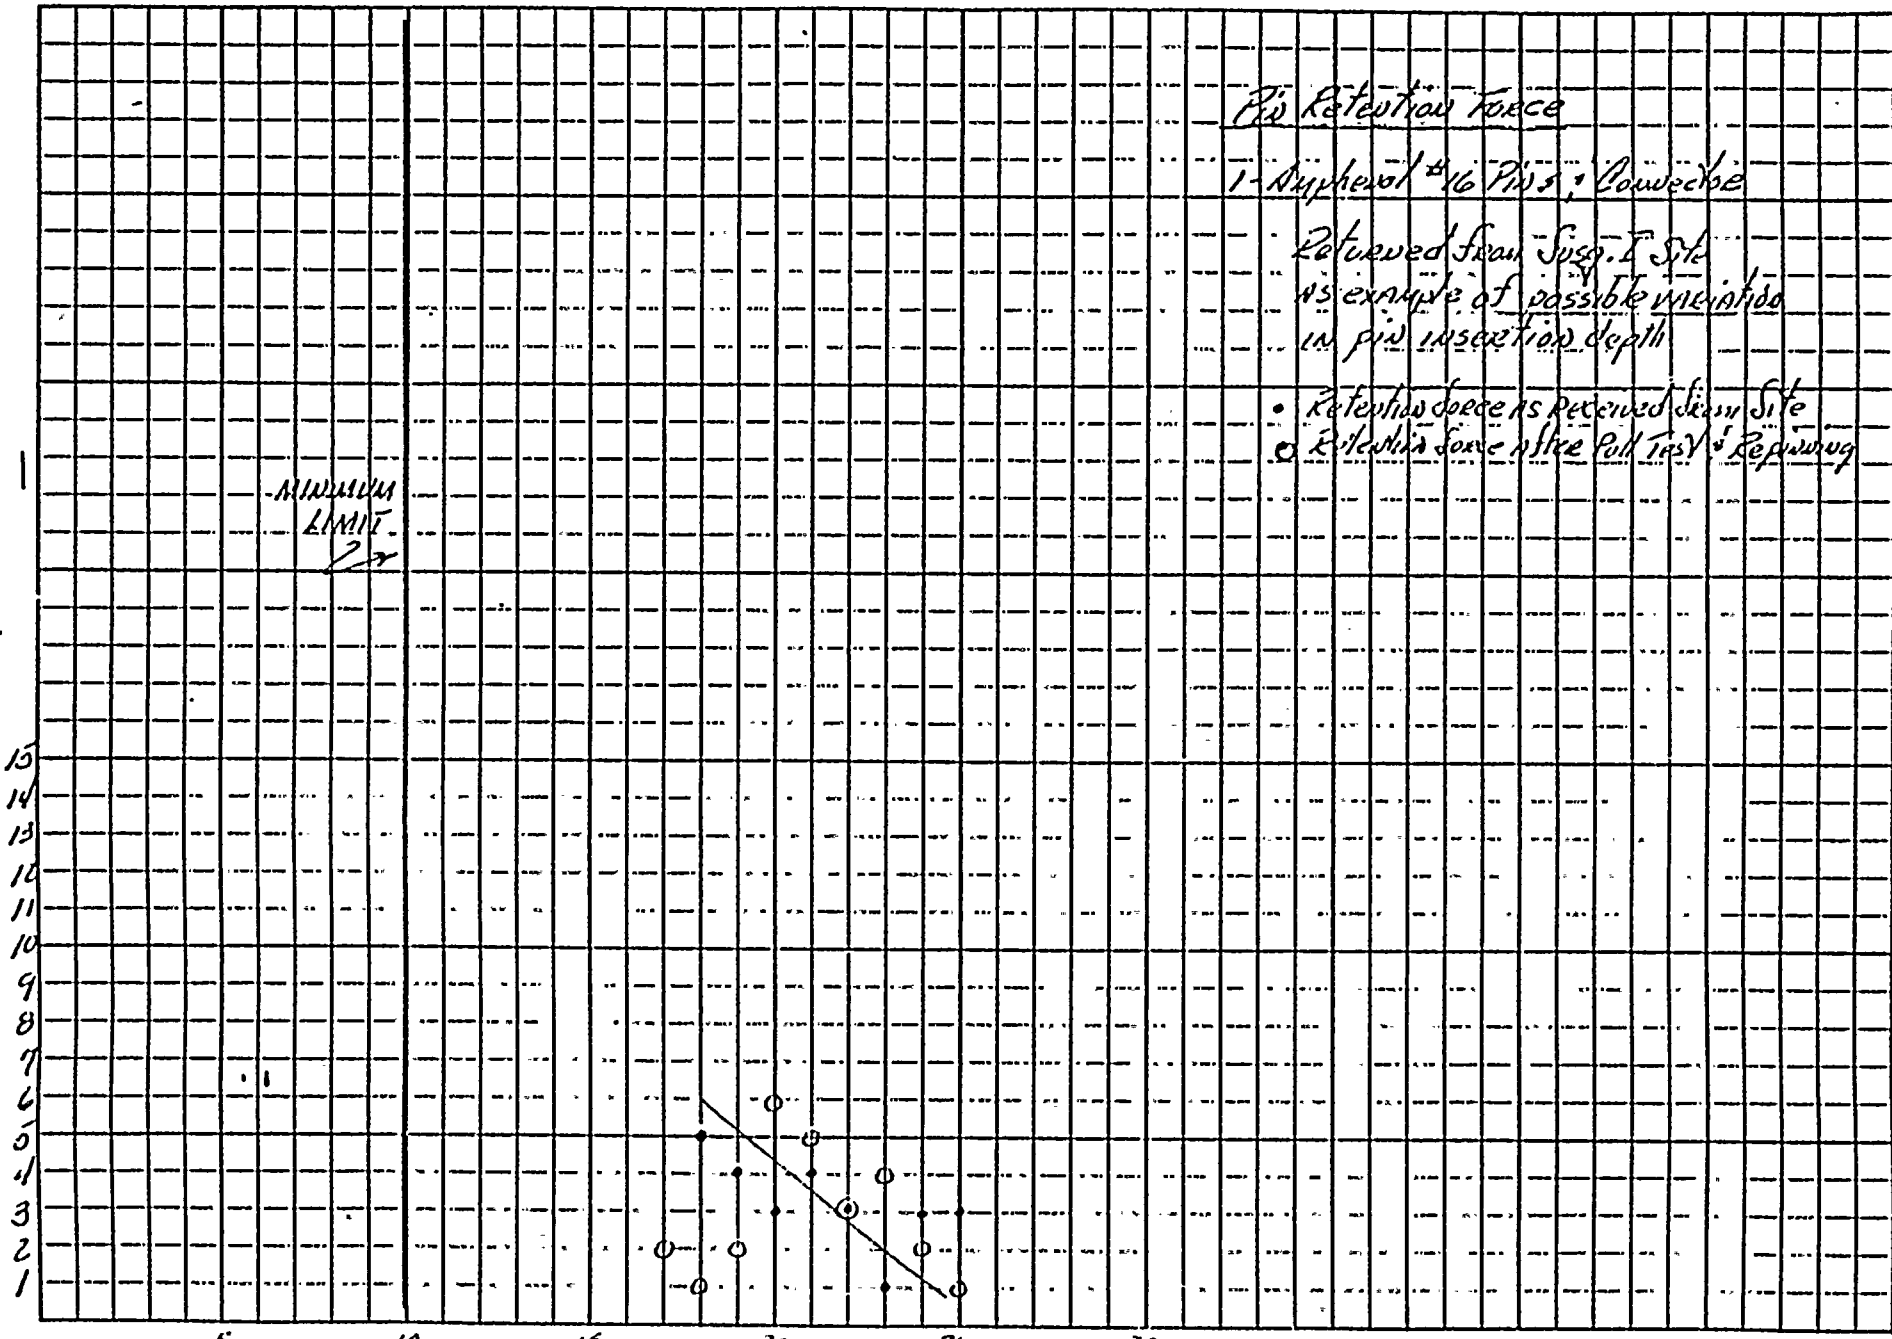 Pin Retention Force
1-Amphenol #16 Pins & Connector
Returned from Susq. I Site
as example of possible variation
in pin insertion depth
• Retention force as Received from Site
O Retention force After Pull Test & Repinning
MINIMUM
LIMIT
15
14
13
12
11
10
9
8
7
6
5
4
3
2
1
5 10 15 20 25 30